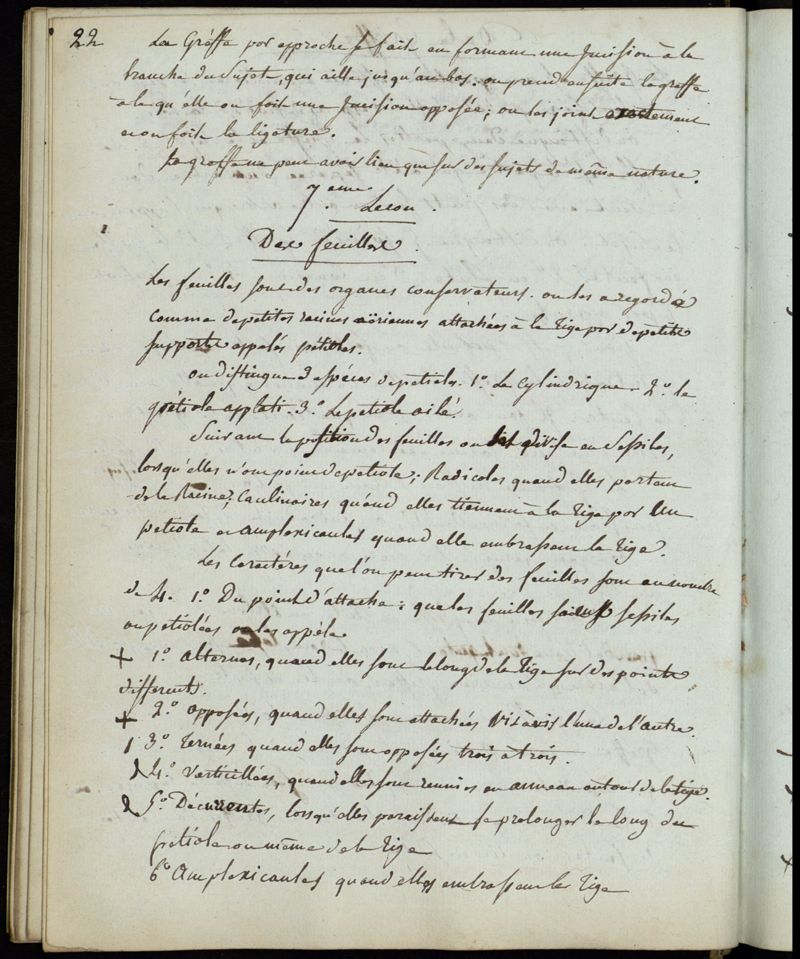 22
La Gréffe par approche se fait en formant une Incision à la
branche du Sujet, qui aille jusqu'au bas. on prend ensuite la greffe
a la qu'elle on fait une Incision opposée; on les joint exactement
et on fait la ligature.
La greffe ne peut avoir lieu que sur des sujets de même nature.
7.eme Lecon.
Des feuilles.
Les feuilles sont des organes conservateurs. on les a regardé
comme de petites racines aëriennes attachées à la Tige par de petits
supports appelés pétioles.
on distingue 3 espéces de petioles. 1.º Le Cylindrique. 2.º le
pétiole applati. 3.º Le petiole ailé.
Suivant la position des feuilles on les divise en Sessiles,
lorsqu'elles n'ont point de petiole; Radicales quand elles partent
de la Racine; Caulinaires quand elles tiennent à la Tige par un
petiole et amplexicaules quand elle embrassent la Tige.
Les Caractéres que l'on peut tirer des feuilles sont au nombre
de 4. 1.º Du point d'attache: que les feuilles soient sessiles
ou petiolées on les appéle
+ 1.º alternes, quand elles sont le long de la Tige sur des points
differents.
+ 2.º opposées, quand elles sont attachées vis à vis l'une de l'autre.
1 3.º Ternées quand elles sont opposées trois à trois.
2 4.º verticillées, quand elles sont reunies en anneau autour de la tige.
2 5.º Décurentes, lorsqu'elles paraissent se prolonger le long du
petiole ou même de la Tige
6.º Amplexicaules quand elles embrassent la Tige